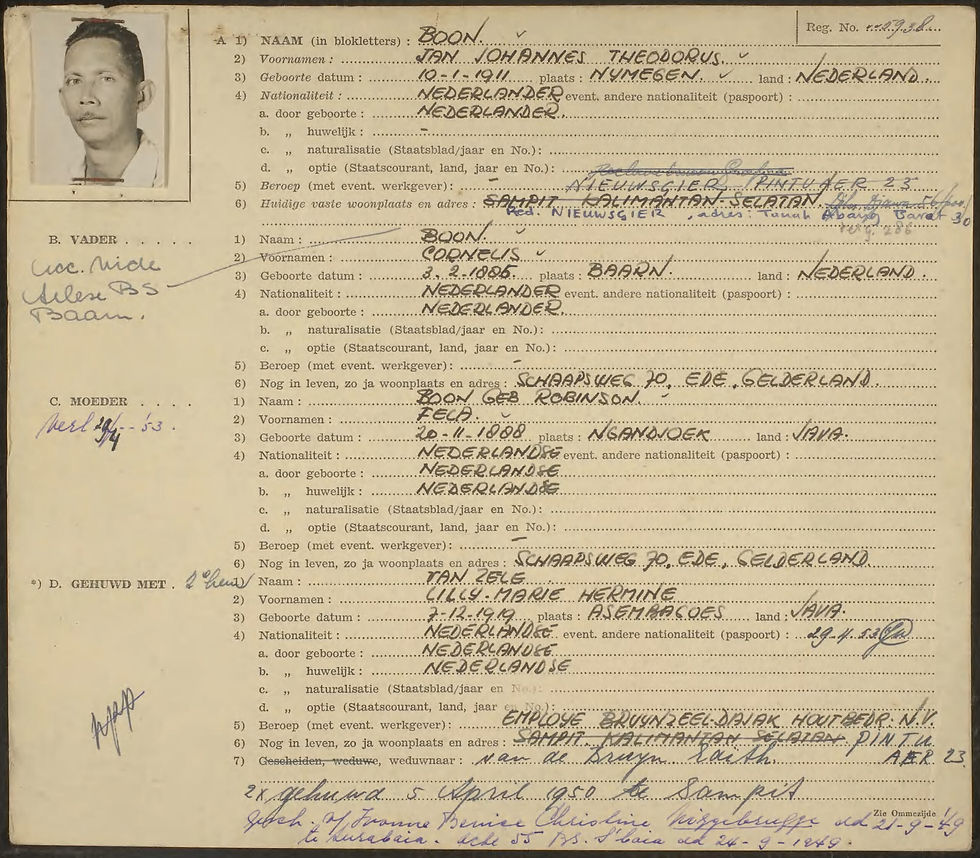 Reg. No. 5938
A 1) NAAM (in blokletters) : BOON.
2) Voornamen : JAN JOHANNES THEODORUS.
3) Geboorte datum : 10-1-1911 plaats : NYMEGEN. land : NEDERLAND.
4) Nationaliteit : NEDERLANDER event. andere nationaliteit (paspoort) :
a. door geboorte : NEDERLANDER.
b. „ huwelijk : -
c. „ naturalisatie (Staatsblad/jaar en No.):
d. „ optie (Staatscourant, land, jaar en No.):
5) Beroep (met event. werkgever): - NIEUWSGIER, PINTU AER 23
6) Huidige vaste woonplaats en adres : SAMPIT KALIMANTAN-SELATAN.
Red. NIEUWSGIER, adres: Tanah Abang Barat 30
B. VADER
1) Naam : BOON.
2) Voornamen : CORNELIS
3) Geboorte datum : 3.2-1886 plaats : BAARN. land : NEDERLAND.
4) Nationaliteit : NEDERLANDER event. andere nationaliteit (paspoort) :
a. door geboorte : NEDERLANDER.
b. „ naturalisatie (Staatsblad/jaar en No.):
c. „ optie (Staatscourant, land, jaar en No.):
5) Beroep (met event. werkgever): -
6) Nog in leven, zo ja woonplaats en adres : SCHAAPSWEG 70, EDE, GELDERLAND.
BS
Baarn.
C. MOEDER
Verl 29/4 - '53.
1) Naam : BOON GEB ROBINSON.
2) Voornamen : FELA.
3) Geboorte datum : 20-11-1888 plaats : NGANDJOEK land : JAVA.
4) Nationaliteit : NEDERLANDSE event. andere nationaliteit (paspoort) :
a. door geboorte : NEDERLANDSE
b. „ huwelijk : NEDERLANDSE
c. „ naturalisatie (Staatsblad/jaar en No.):
d. „ optie (Staatscourant, land, jaar en No.):
5) Beroep (met event. werkgever): -
6) Nog in leven, zo ja woonplaats en adres : SCHAAPSWEG 70, EDE, GELDERLAND.
*) D. GEHUWD MET . 2e
1) Naam : TAN ZELE
2) Voornamen : LILLY-MARIE HERMINE
3) Geboorte datum : 7-12-1919 plaats : ASEMBAGOES land : JAVA.
4) Nationaliteit : NEDERLANDSE event. andere nationaliteit (paspoort) : 29-4-53
a. door geboorte : NEDERLANDSE
b. „ huwelijk : NEDERLANDSE
c. „ naturalisatie (Staatsblad/jaar en No.):
d. „ optie (Staatscourant, land, jaar en No.):
5) Beroep (met event. werkgever): EMPLOYE BRUYNZEEL DAJAK HOUTBEDR. N.V.
6) Nog in leven, zo ja woonplaats en adres : SAMPIT KALIMANTAN SELATAN PINTU
AER 23.
7) Gescheiden, weduwe, weduwnaar : van de Bruyn Edith.
2x gehuwd 5 April 1950 te Sampit
Zie Ommezijde
Gesch. v/ Ivonne Benise Christine dd 21-9-'49
te Surabaia. Acte 55 BS. S'baia dd 24-9-1949.